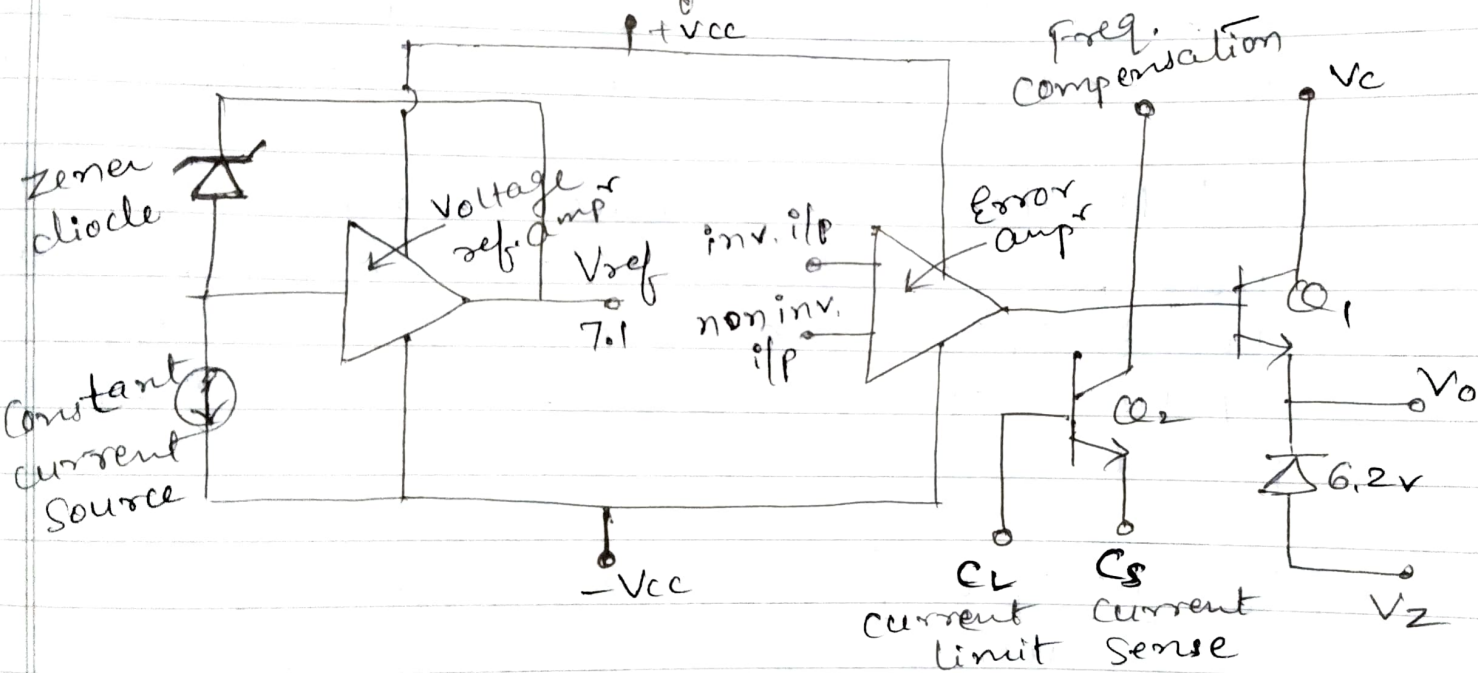 +Vcc
Freq.
compensation
Vc
zener
diode
Voltage
ref. ampr
Vref
7.1
inv. i/p
non inv.
i/p
Error
ampr
Q1
Vo
Constant
current
source
Q2
6.2v
-Vcc
CL
current
limit
Cs
current
sense
Vz